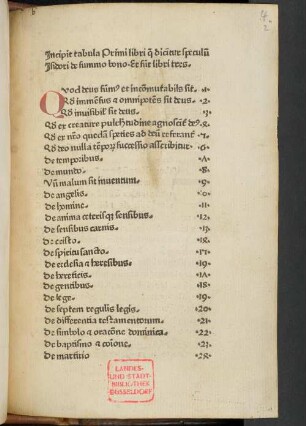 Incipit tabula Primi libri q̄ dicitur speculū
Isidori de summo bono. et sūt libri tres.
Quod deus sum⁹ et incōmutabilis sit. .1.
Qd immensus ⁊ omnipotēs sit deus. .2.
Qd inuisibil̓ sit deus. .3.
Qd ex creature pulchitudine agnoscit̄
Qd ex
Qd deo nulla tēpor̨ successio ascribitur
de temporibus. .ʌ.
de mundo. .8.
Vn̄ malum sit inuentum. .9.
de angelis. .10.
de homine. .11.
de anima ceterisq̨ sensibus. .12.
de sensibus carnis. .13.
de cristo.
de spiritu sancto.
de ecclesia ⁊ heresibus.
de hereticis. .1ʌ.
de gentibus. .18.
de lege. .19.
de septem regulis legis. .20.
de differentia testamentorum. .21.
de simbolo ⁊ oracōne dominica. .22.
de baptismo ⁊ cōione. .23.
de martirio
LANDES-
UND STADT-
BIBLIOTHEK
DÜSSELDORF